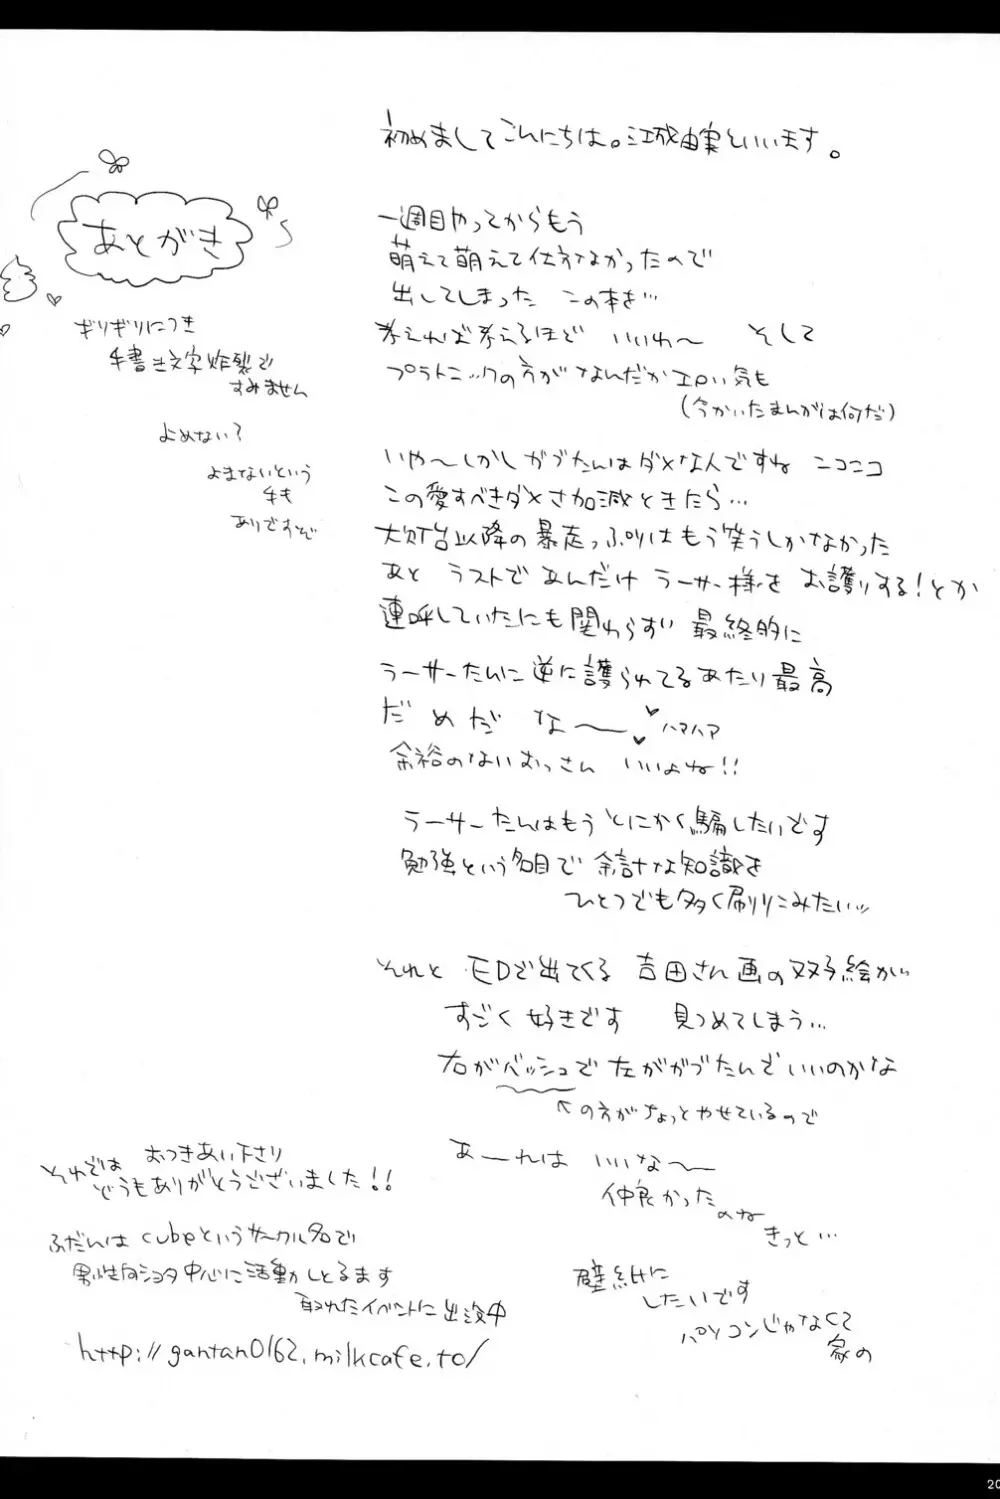 初めましてこんにちは。江城由実といいます。
あとがき
ギリギリにつき
手書き文字炸裂で
すみません
よめない?
よまないという
手も
ありですぞ
一週目やってからもう
萌えて萌えて仕方なかったので
出してしまった この本を…
考えれば考えるほど いいわ〜 そして
プラトニックの方がなんだかエロい気も
(今かいたまんがは何だ)
いや〜しかしガブたんはダメな人ですね ニコニコ
この愛すべきダメさ加減ときたら…
大灯台以降の暴走っぷりはもう笑うしかなかった
あと ラストであんだけ ラーサー様を お護りする!とか
連呼していたにも関わらずい 最終的に
ラーサーたんに逆に護られてるあたり最高
だめだな〜 ハァハァ
余裕のないおっさん いいよね!!
ラーサーたんはもうとにかく騙したいです
勉強という名目で余計な知識を
ひとつでも多く刷りこみたい
それと EDで出てくる 吉田さん画の双子絵が
すごく 好きです 見つめてしまう…
右がバッシュで左がガブたんでいいのかな
の方がちょっとやせているので
あーれは いいな〜
仲良かった
のね
きっと…
壁紙に
したいです
パソコンじゃなくて
家の
それでは おつきあい下さり
どうもありがとうございました!!
ふだんはcubeというサークル名で
男性向ショタ中心に活動しとるます
取れたイベントに出没中
http://gantan0162.milkcafe.to/
20